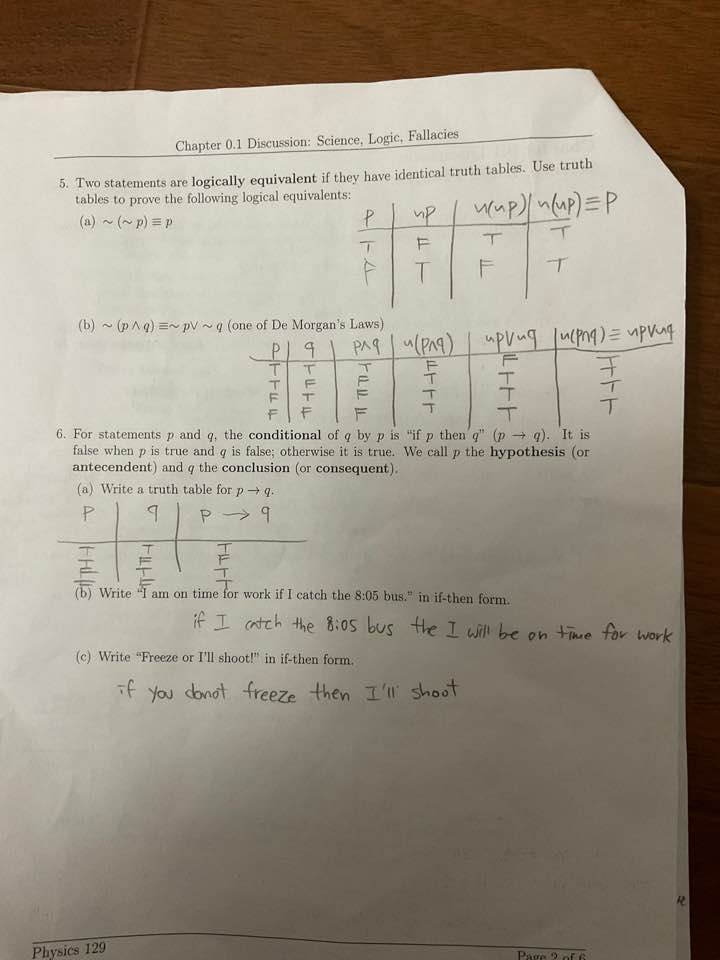 Chapter 0.1 Discussion: Science, Logic, Fallacies
5. Two statements are logically equivalent if they have identical truth tables. Use truth
tables to prove the following logical equivalents:
(a) ∼ (∼ p) ≡ p
P | ~P | ~(~P) | ~(~P) ≡ P
T | F | T | T
F | T | F | T
(b) ∼ (p ∧ q) ≡∼ p∨ ∼ q (one of De Morgan's Laws)
P | q | P∧q | ~(P∧q) | ~P∨~q | ~(P∧q) ≡ ~P∨~q
T | T | T | F | F | T
T | F | F | T | T | T
F | T | F | T | T | T
F | F | F | T | T | T
6. For statements p and q, the conditional of q by p is "if p then q" (p → q). It is
false when p is true and q is false; otherwise it is true. We call p the hypothesis (or
antecendent) and q the conclusion (or consequent).
(a) Write a truth table for p → q.
P | q | P → q
T | T | T
T | F | F
F | T | T
F | F | T
(b) Write "I am on time for work if I catch the 8:05 bus." in if-then form.
if I catch the 8:05 bus the I will be on time for work
(c) Write "Freeze or I'll shoot!" in if-then form.
if you donot freeze then I'll shoot
Physics 129
Page 2 of 6